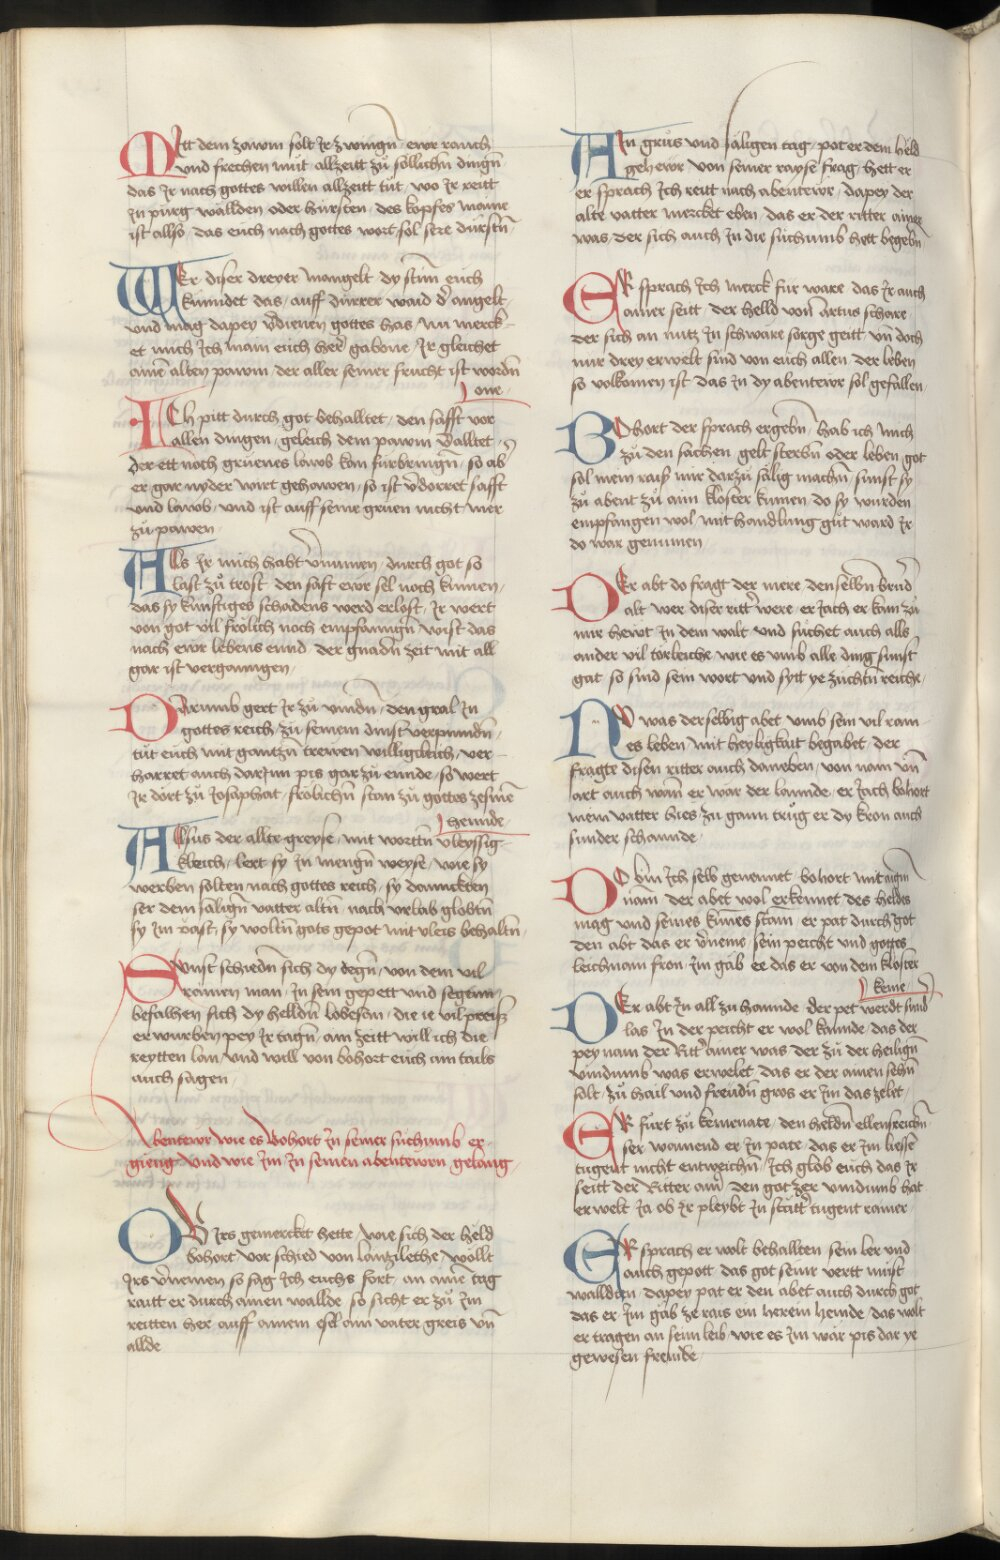 Mitt dem zawm solt Ir zwingñ ewr rauch
und frechen müt allzeitt zů söllichñ dingñ
das Ir nach gottes willen allzeitt tüt, wo Ir reitt
In pürg wällden oder hürsten, des kopfes mainne
ist allso, das euch nach gottes wort, sol sere dürstñ
WEr diser dreyer mangelt dy stim̃ euch
kunndet das, auff dürrer waid d' angelt
und mag dapey v'dienen gottes has, nu merck-
et mich Ich main euch her gabone, Ir gleichet
aine alten pawm, der aller seiner frucht ist wordñ
one
ICh pitt durch got behalltet, den safft vor
allen dingen, geleich dem pawm v'alltet,
der ett noch gruenes lawb kan fürbringñ, so ab'
er gar nyder wirt gehawen, so ist v'dorret safft
und lawb, und ist auff seine gruen nicht mer
zů pawen,
ALls Ir mich habt v'numen, durch got so
last zů trost, den saft ewr sel noch kumen,
das sy kunftiges schadens werd erlost, Ir wert
von got vil frölich noch empfanngñ, wist das
nach ewr lebens ennd, der gnadñ zeit mit all
gar ist verganngen,
DArumb gert Ir zů vindñ, den gral In
gottes reich, zů seinem dinst verpunndñ,
tüt euch mit gantzñ trewen williglich, ver-
harret auch darInn pis gar zů ennde, so wert
Ir dort zů Josaphat, frölichñ stan zů gottes zesme
hennde
ALsus der allte greyse, mit worttñ vleyssig-
kleich, lert sy In mengñ weyse, wie sy
werben solten nach gottes reich, sy dannckten
ser dem säligñ vatter altñ, nach urlab globtñ
sy Im vast, sy woltñ gots gepot mit vleis behaltñ,
SUnst schiedñ sich dy degñ, von dem vil
rainen man, In sein gepett und segenn,
befalhen sich dy helldñ lobesan, die ie vil preiss
erwurben pey Ir tagñ, ain zeitt will ich die
reytten lan, und will von bohort euch ain tails
auch sagen,
Abentewr wie es Bohort In seiner suchumb er-
gieng und wie Im In seinen abentewrn gelang,
OB Irs gemercket hette, wie sich der held
bohort vor schied von lanzilethe, wollt
Irs v'nemen so sag Ich euchs fort, an aine tag
raitt er durch ainen wallde, so sicht er zů Im
reitten her auff ainem esl ain vater greis uñ
allde
AIn grus und säligen tag, pot er dem held
gehewr von seiner rayse frag, hett er
er sprach Ich reitt nach abentewr, dapey der
alte vatter mercket eben, das er der ritter ainer
was, der sich auch In die suchumb hett begebñ
ER sprach Ich merck für ware das Ir auch
ainer seitt, der helld voñ artus schare,
der sich an nutz In schwäre sorge geitt, uñ doch
nur drey erwelt sind von euch allen der leben
so volkomen ist das In dy abentewr sol gefallen,
BOhort der sprach ergebñ, hab ich mich
zů den sachen, gelt sterbñ oder leben, got
sol mein rais mir darzů sälig machñ, sunst sy
zů abent zů aim kloster kumen, do sy wurden
empfangen wol, mit handlung gůt ward Ir
do war genumen
DEr abt do fragt der mere, den selbñ brud'
alt wer diser ritt' were, er Jach er kam zů
mir hewt In dem walt, und suchet auch alls
ander vil törleiche, wie es umb alle ding sunst
gat, so sind sein wort und sytt ye zuchtñ reiche,
NU was derselbig abet umb sein vil rain-
es leben, mit heyligkait begabet, der
fragte disen ritter auch daneben, von nam uñ
art auch wañ er war der lannde, er Jach bohort
mein vatter hies zu gann trůg er dy kron auch
sunder schannde,
DO bin Ich selb genennet, bohort mit aigñ
nam, der abet wol erkennet, des heldes
mag und seines künnes stam, er pat durch got
den abt das er v'neme, sein peicht und gottes
leichnam fron, Im gab ee das er von dem kloster
keme,
DEr abt In all zu hannde, der pet werdt sind
las In der peicht er wol kannde, das der
pey nam der Ritt' ainer was, der zů der heiligñ
vindumb was erwelet, das er der ainen sehñ
solt, zů hail und freudñ gros er Im das zelet,
ER fürt zů kemenate, den heldñ ellensreichñ
ser wainend er In pate, das er Im liesse
tugent nicht entweichñ, Ich glob euch das Ir
seitt der Ritter ain, den got zer vindumb hat
erwelt, Ja ob Ir pleybt In stätt' tugent rainer,
ER sprach er wolt behallten sein ler und
auch gepott, das got seinr vertt must
walldten, dapey pat er den abet auch durch got
das er Im gäb ze rais ein herein hemde, das wolt
er tragen an seim leib, wie es Im wär pis dar ye
gewesen fremde,